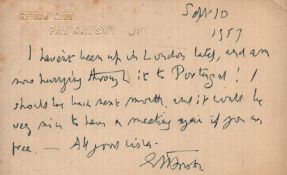 REFORM CLUB.
PALL MALL. S.W.1
Sept 10
1957
I haven't been up in London lately, and am
now hurrying through it to Portugal! I
should be back next month, and it would be
very nice to have a meeting again if you are
free. — All good wishes.
EMForster